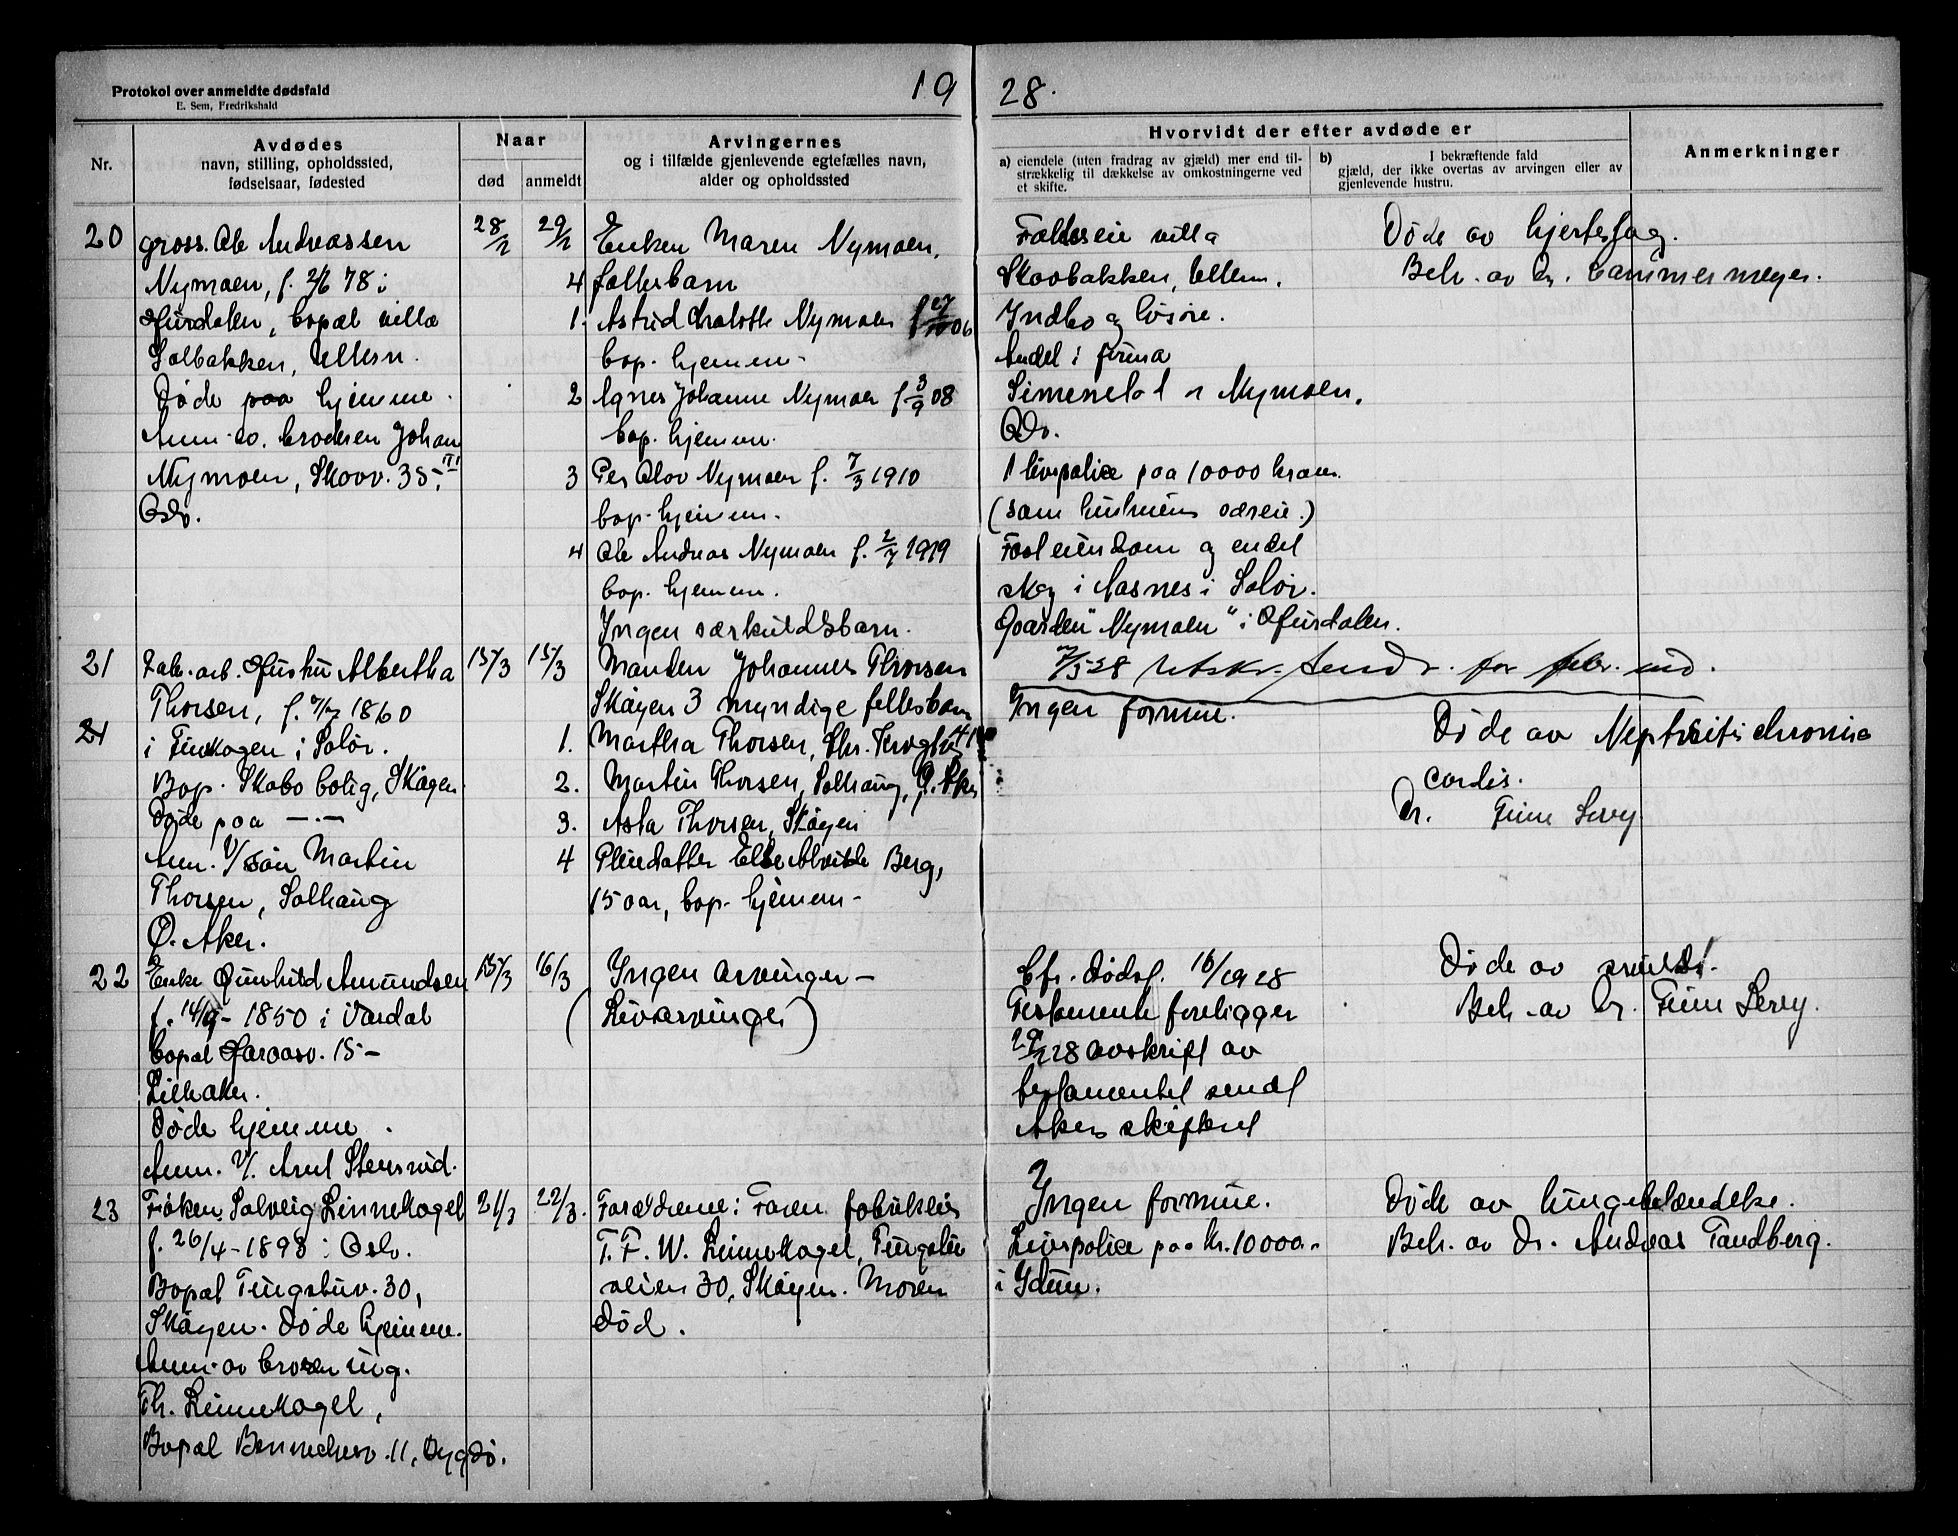 Protokol over anmeldte dødsfald
E. Sem, Fredrikshald
19 28.
Nr.
Avdødes
navn, stilling, opholdssted,
fødselsaar, fødested
Naar
død
anmeldt
Arvingernes
og i tilfælde gjenlevende egtefælles navn,
alder og opholdssted
Hvorvidt der efter avdøde er
a) eiendele (uten fradrag av gjæld) mer end til-
strækkelig til dækkelse av omkostningerne ved
et skifte.
b) I bekræftende fald
gjæld, der ikke overtas av arvingen eller av
gjenlevende hustru.
Anmerkninger
20
gross. Ole Andreassen
Nymoen, f. 2/6 78 i
Hurdalen, bopæl villa
Solbakken, Ullern.
Døde paa hjemme.
Anm. av. broderen Johan
Nymoen, Skovv. 35,
Oslo.
28/2
29/2
Enken Maren Nymoen.
4 fellesbarn
1. Astrid Nymoen f 27/10 06
bop. hjemme.
2 Agnes Johanne Nymoen f 3/9 08
bop. hjemme.
3 Per Olov Nymoen f. 7/3 1910
bop. hjemme.
4 Ole Andreas Nymoen f. 2/7 1919
bop. hjemme.
Ingen særkuldsbarn.
Felleseie villa
Skovbakken, Ullern.
Indbo og løsøre.
Andel i firma
Nymoen,
Oslo.
1 livspolice paa 10000 kroner.
(som hustruens særeie.)
Fast eiendom og endel
skog i Aasnes i Solør.
Gaarden "Nymoen" i Hurdalen.
Døde av hjerteslag.
Beh. av Dr. Cammermeyer.
21
Fabr. arb. Hustru Albertha
Thorsen, f. 1860
21
i Finskogen i Solør.
Bop. Skabo bolig, Skøyen.
Døde paa — „ —
Anm. v/ søn Martin
Thorsen, Solhaug
Ø. Aker.
15/3
15/3
Manden Johannes Thorsen
Skøyen 3 myndige fellesbarn
1. Martha Thorsen, Chr. Kroghs
2. Martin Thorsen, Solhaug, Ø. Aker
3. Asta Thorsen, Skøyen
4 Pleiedatter Else Berg,
15 aar, bop. hjemme.
28 Utskr. sendt for febr. md.
Ingen formue.
Døde av chronica
cordis.
Dr. Finn Levy
22
Enke Gunhild Amundsen
f. 14/9 - 1850 i Vardal
bopæl 15 –
Lilleaker.
Døde hjemme.
Anm. v/. Stensrud.
15/3
16/3
Ingen arvinger –
(Livsarvinger)
Cfr. dødsf. 16/1928
Testamente foreligger
28 avskrift av
testamentet sendt
Akers skifteret
Beh. av Dr. Finn Levy.
23
Frøken Solveig Linnekogel
f. 26/4 - 1898 i Oslo.
Bopæl Tingstuv. 30,
Skøyen. Døde hjemme.
Anm. av broren ing.
Th. Linnekogel,
Bopæl Bennechesv. 11, Bygdø.
21/3
22/3.
Forældrene: Faren fabrikeier
T. F. W. Linnekogel, Tingstu
veien 30, Skøyen. Moren
død.
?
Ingen formue.
Livspolice paa kr. 10000.-
i Idun.
Døde av lungebetændelse.
Beh. av Dr. Andreas Tandberg.